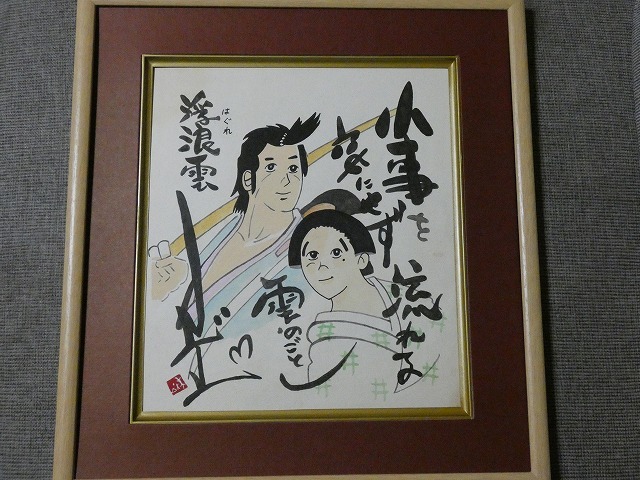 小事を
気にせず
流れる
雲のごとし
浮浪雲
はぐれ